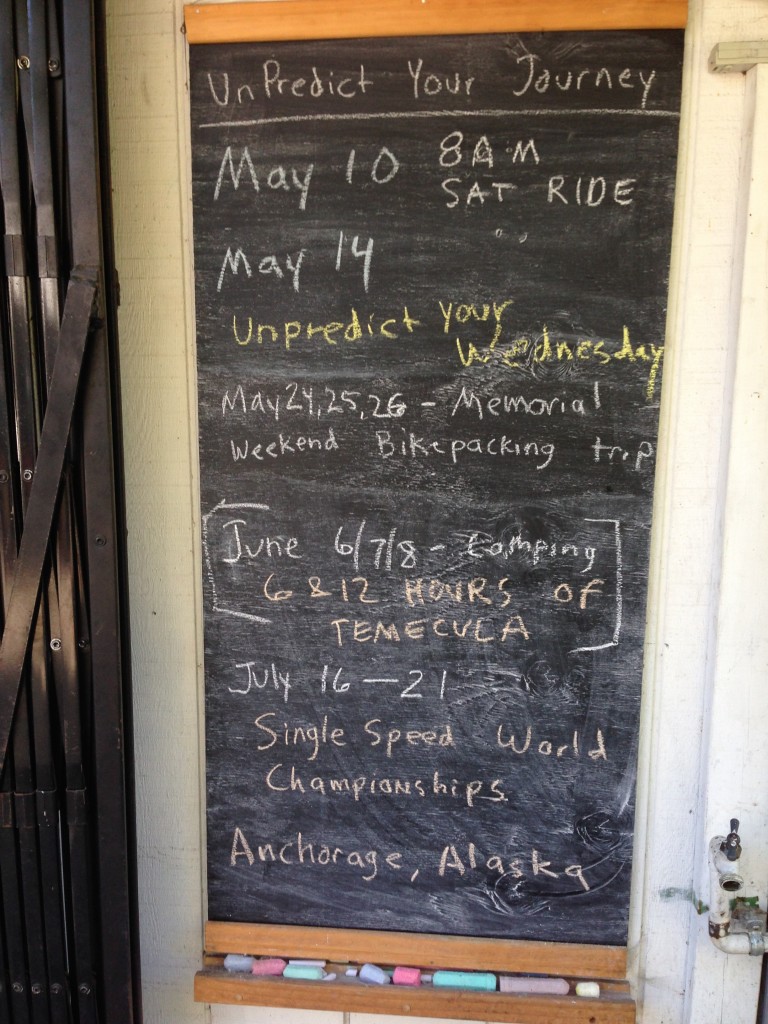 UnPredict Your Journey
May 10 8AM
SAT RIDE
May 14
Unpredict your
Wednesday
May 24,25,26 - Memorial
Weekend Bikepacking trip
June 6/7/8 - Camping
6 & 12 HOURS OF
TEMECULA
July 16 - 21
Single Speed World
Championships
Anchorage, Alaska